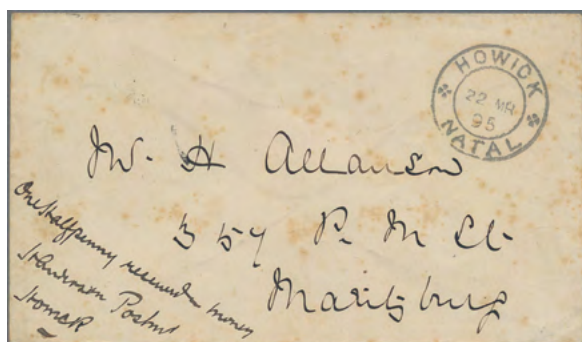 HOWICK
22 MR
95
NATAL
W. H Allanson
357 P. M St.
Maritzburg
One halfpenny received in money
Anderson Postmr
Howick